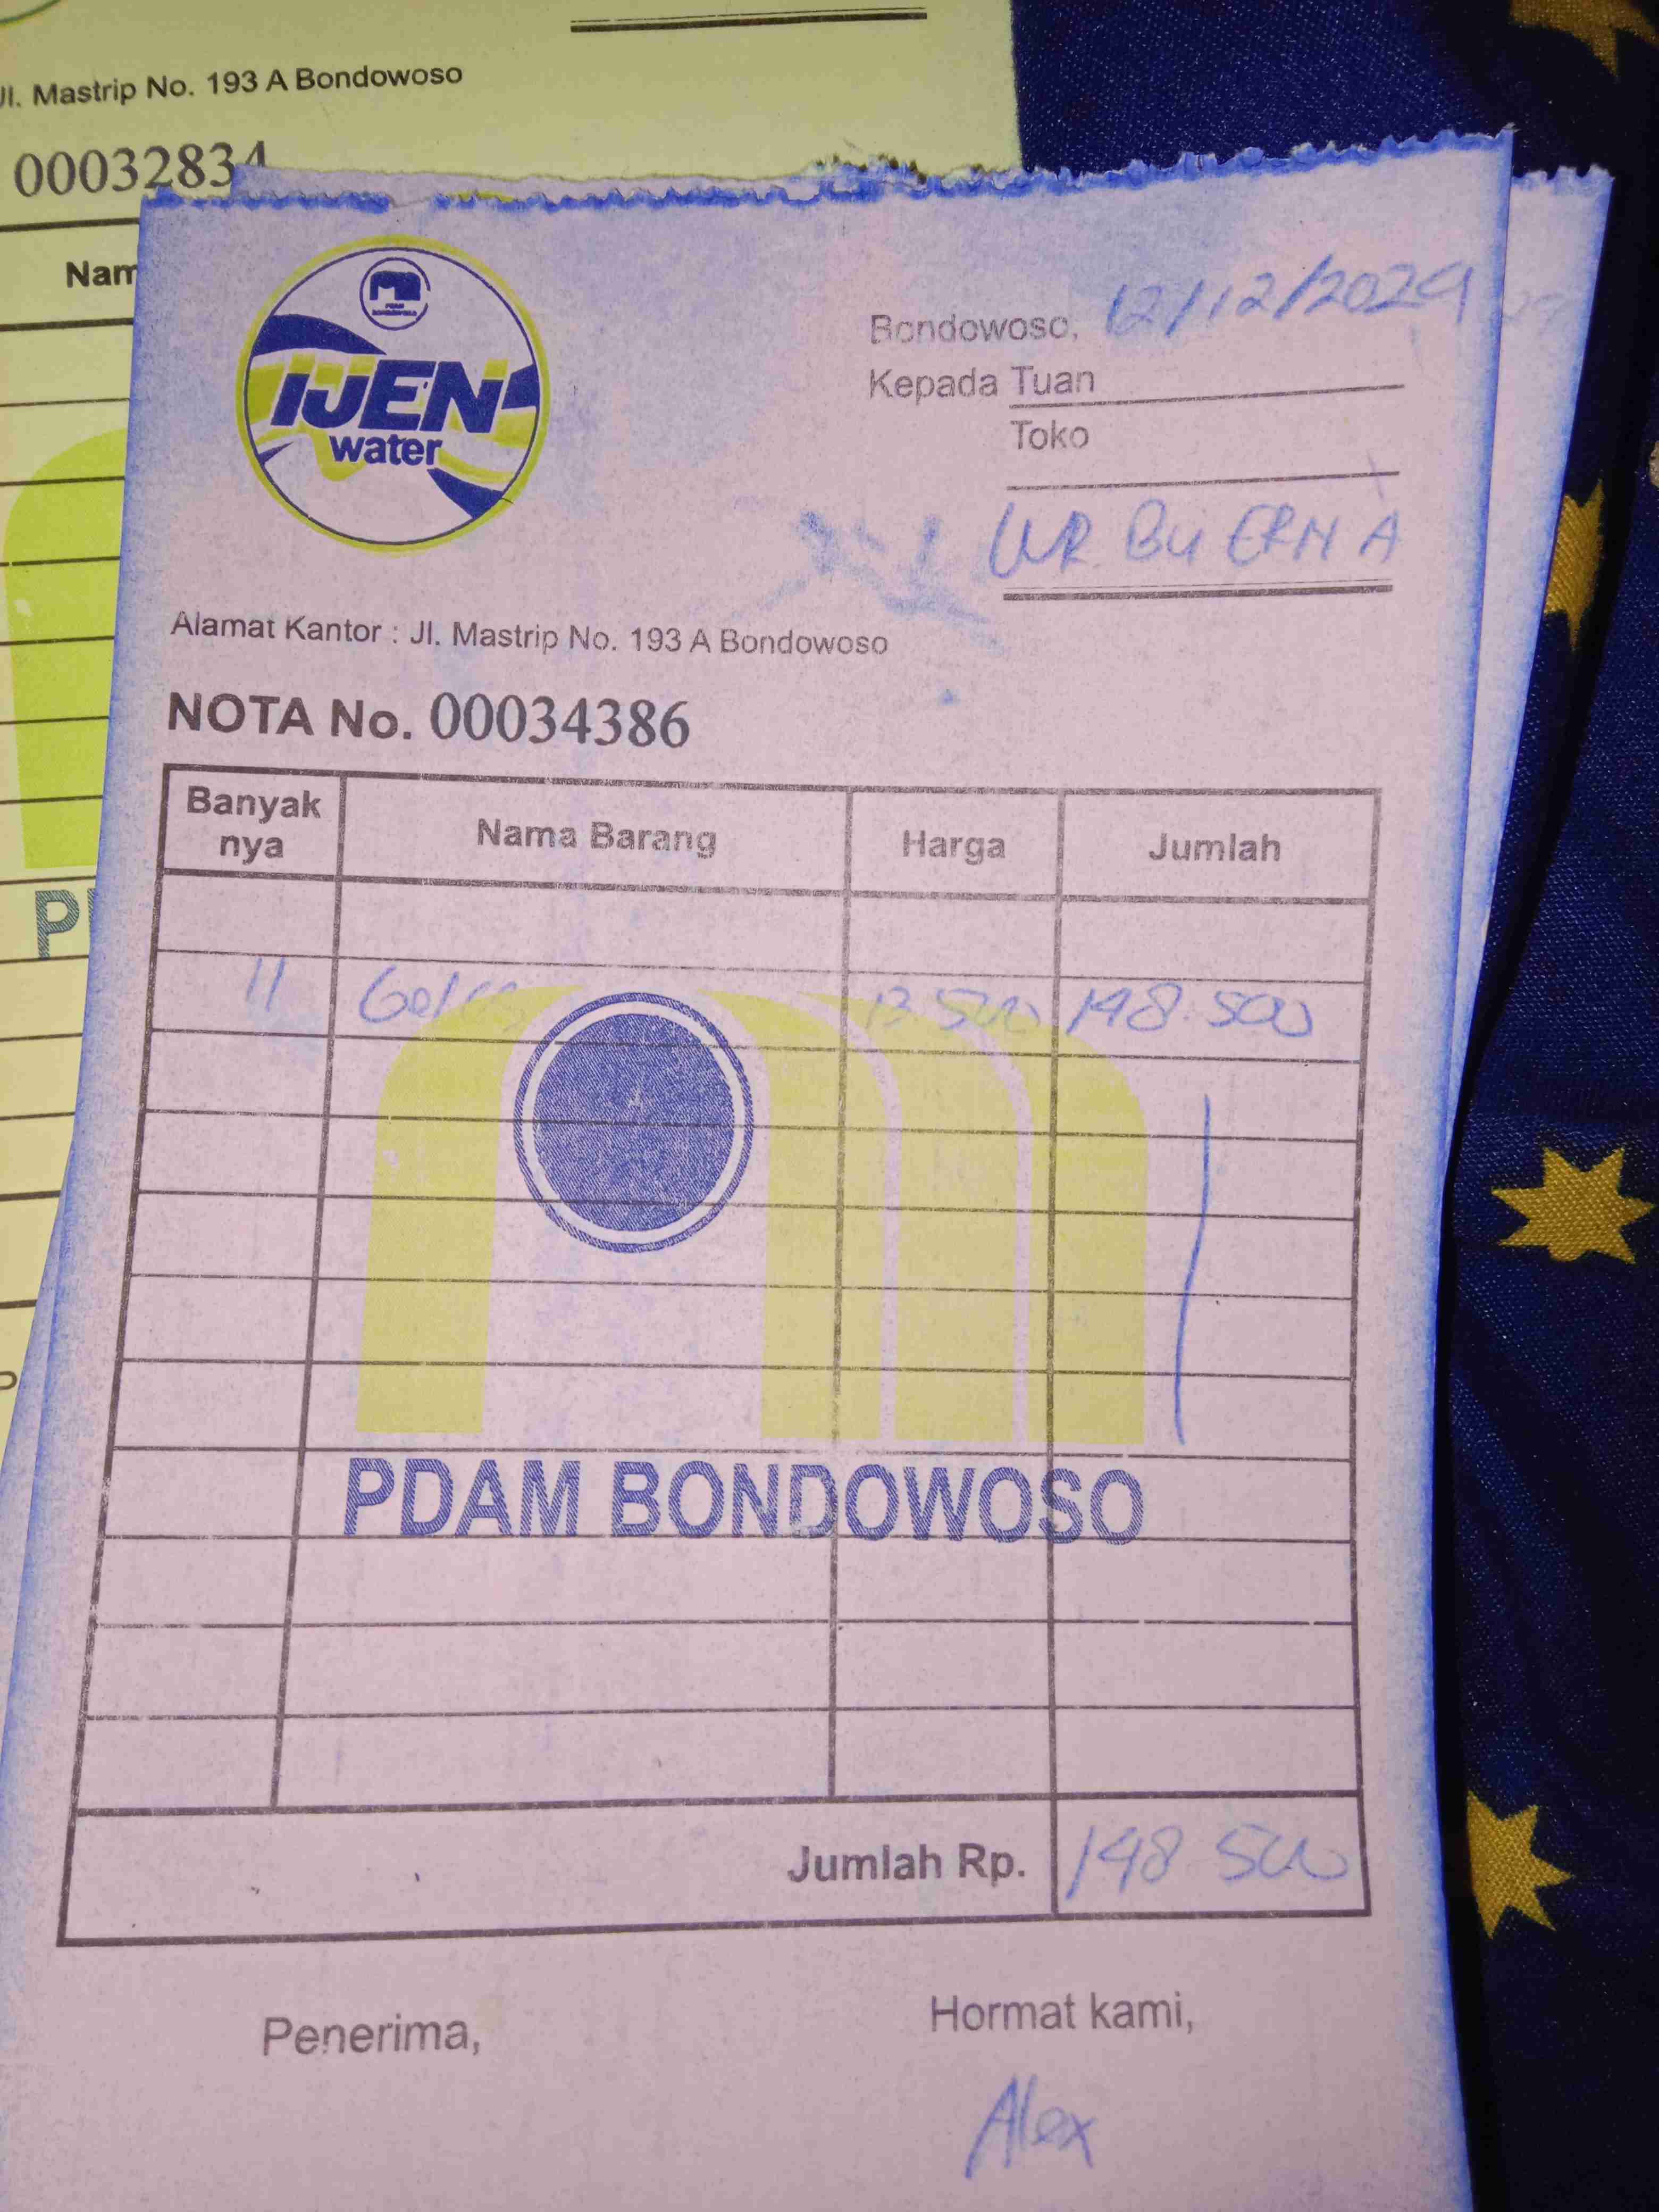 Jl. Mastrip No. 193 A Bondowoso
00032834
Nam
P
PDAM
BONDOWOSO
IJEN
water
Bondowoso, 12/12/2024
Kepada Tuan
Toko
WR. BU ERNA
Alamat Kantor : Jl. Mastrip No. 193 A Bondowoso
NOTA No. 00034386
Banyak nya Nama Barang Harga Jumlah
11 13.500 148.500
PDAM BONDOWOSO
Jumlah Rp. 148 500
Penerima, Hormat kami,
Alex